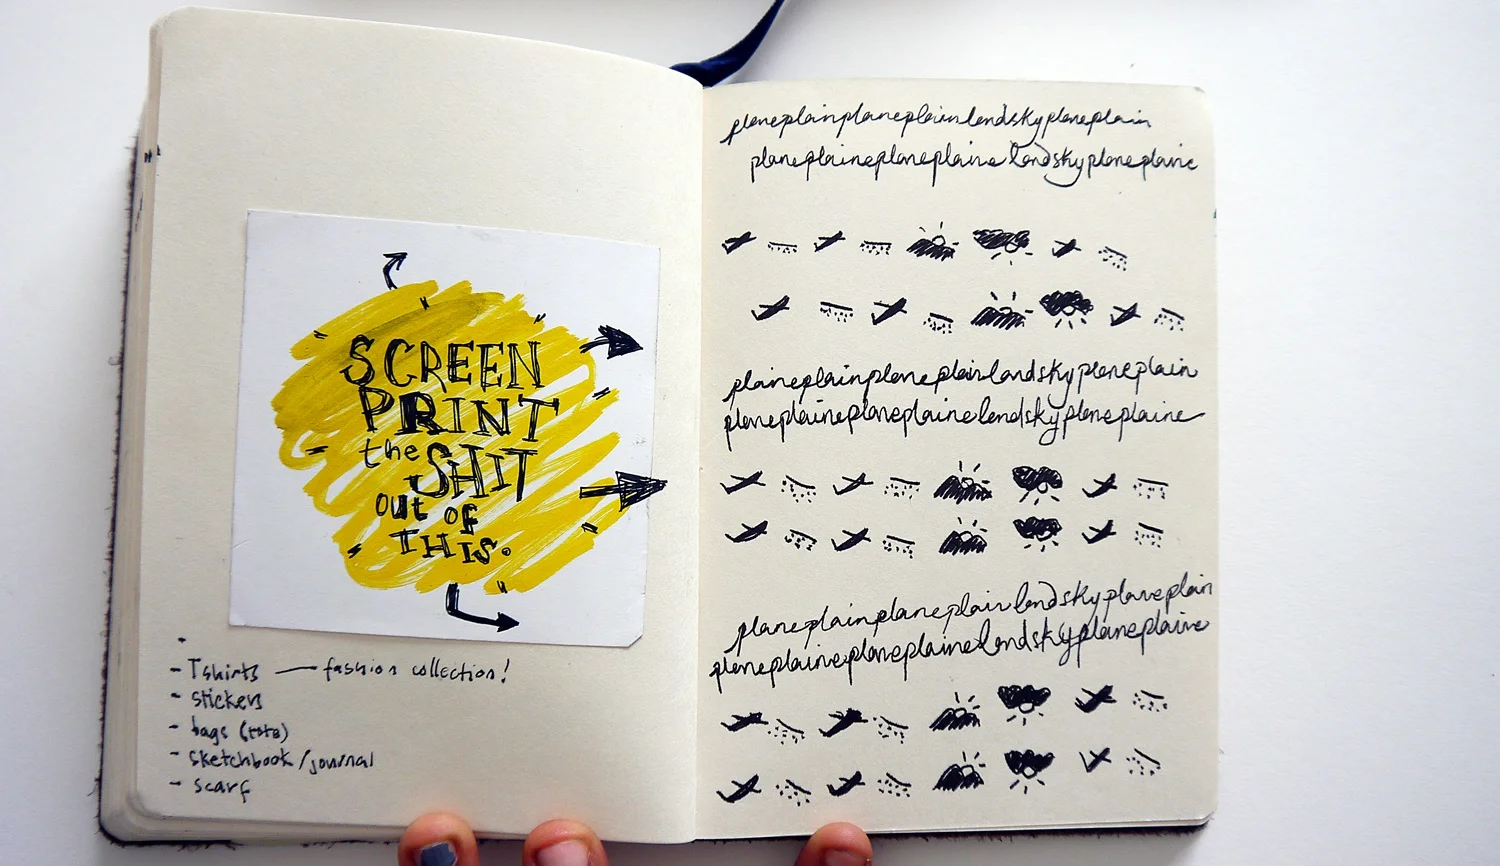 SCREEN
PRINT
the SHIT
out OF
THIS.
- Tshirts — fashion collection!
- stickers
- bags (tote)
- sketchbook/journal
- scarf
planeplainplaneplainlandskyplaneplain
planeplaineplaneplainelandskyplaneplaine
plaineplainplaneplainlandskyplaneplain
planeplaineplaneplainelandskyplaneplaine
planeplainplaneplainlandskyplaneplain
planeplaineplaneplainelandskyplaneplaine